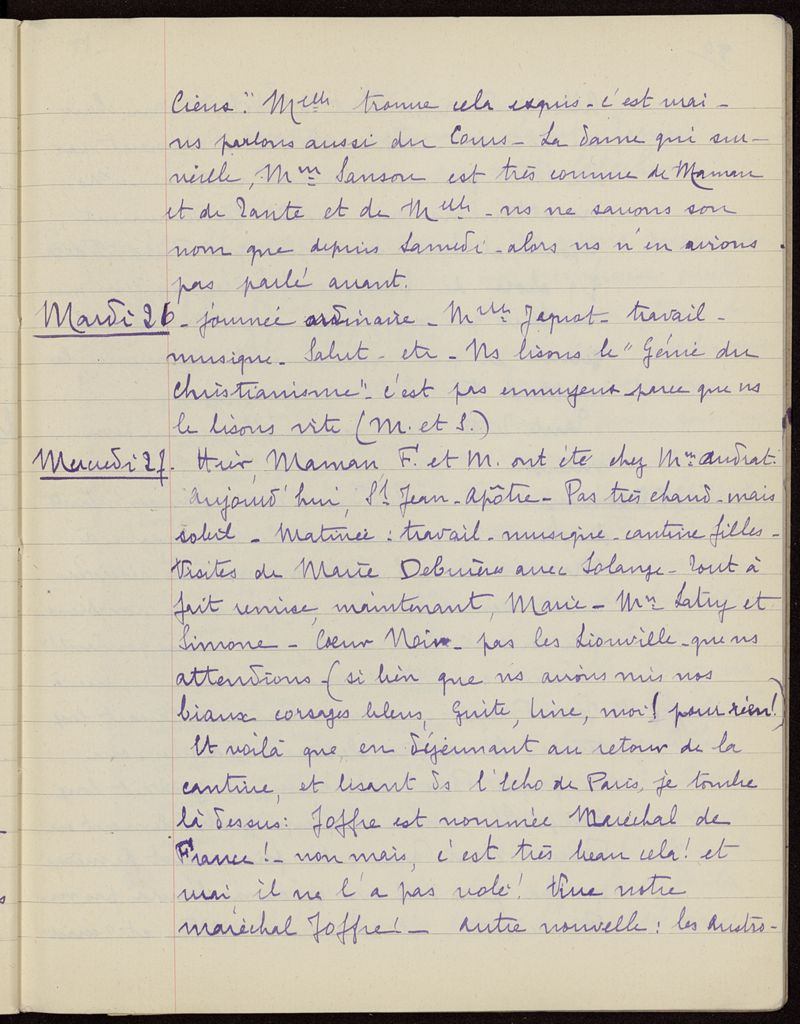 ciens." Melle trouve cela exquis - c'est vrai -
ns parlons aussi du Cours - La dame qui sur-
veille, Mme Sanson est très connue de Maman
et de Tante et de Melle - ns ne savons son
nom que depuis Samedi - alors ns n'en avions
pas parlé avant.
Mardi 26 - journée ordinaire - Melle Jaquot - travail -
musique - Salut - etc - Ns lisons le "Génie du
Christianisme" - c'est pas ennuyeux - parce que ns
le lisons vite (M. et S.)
Mercredi 27. Hier, Maman F. et M. ont été chez Mme Audrat.
Aujourd'hui, St Jean - Apôtre - Pas très chaud - mais
soleil - Matinée : travail - musique - cantine filles -
Visites de Marie avec Solange - Tout à
fait remise, maintenant, Marie - Mme Latry et
Simone - Coeur Noir - pas les Liouville - que ns
attendions - (si bien que ns avions mis nos
beaux corsages bleus, Guite, Line, moi! pour rien!)
Et voilà que en déjeunant au retour de la
cantine, et lisant ds l'Echo de Paris, je tombe
là dessus : Joffre est nommée Maréchal de
France! - non mais, c'est très beau cela! et
vrai, il ne l'a pas volé! Vive notre
maréchal Joffre! - Autre nouvelle : les Austro-